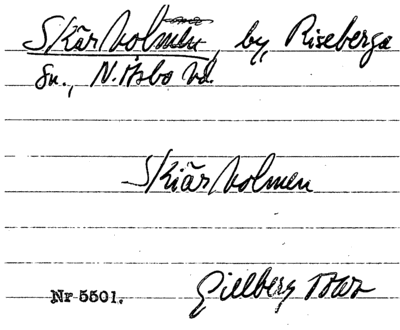 Skärholmen, by, Riseberga
sn., N. Åsbo hd.
Skiärholmen
Nr 5501. Gielberg